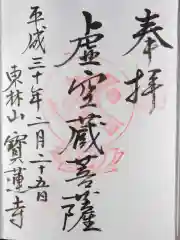 奉拝
虚空蔵菩薩
平成三十年一月二十五日
東林山寳蓮寺